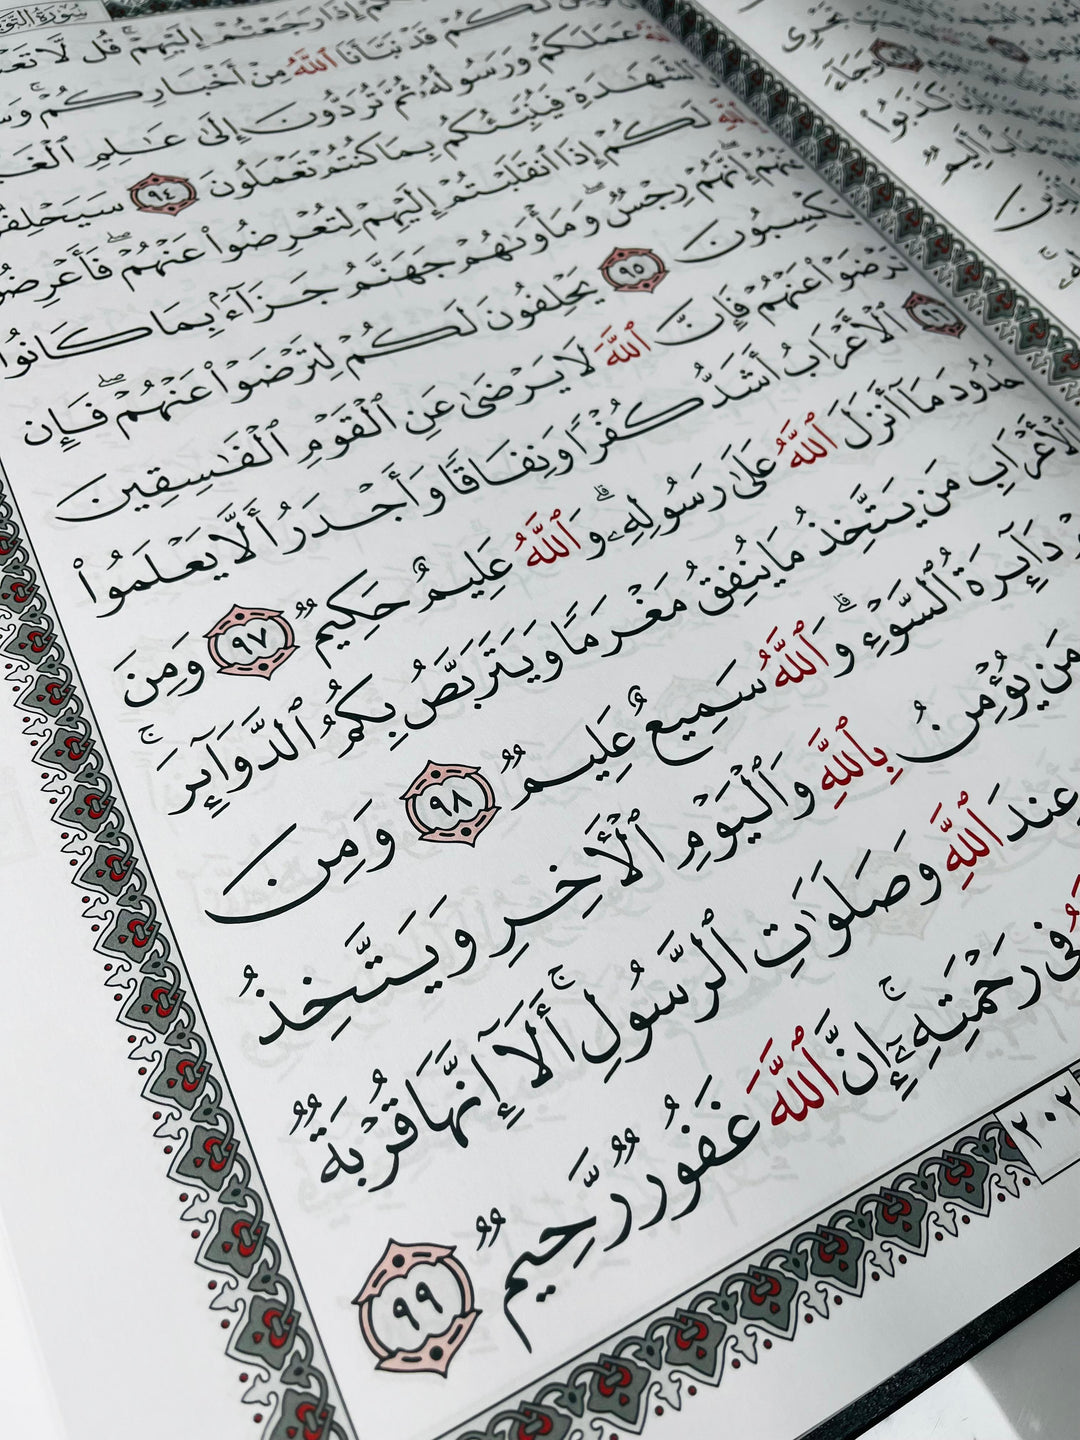 إِذَا رَجَعْتُمْ إِلَيْهِمْ ۚ قُل لَّا
لَكُمْ قَدْ نَبَّأَنَا ٱللَّهُ مِنْ أَخْبَارِكُمْ ۚ
عَمَلَكُمْ وَرَسُولُهُۥ ثُمَّ تُرَدُّونَ إِلَىٰ عَـٰلِمِ
ٱلشَّهَـٰدَةِ فَيُنَبِّئُكُم بِمَا كُنتُمْ تَعْمَلُونَ ٩٤
لَكُمْ إِذَا ٱنقَلَبْتُمْ إِلَيْهِمْ لِتُعْرِضُوا۟ عَنْهُمْ ۖ
إِنَّهُمْ رِجْسٌ ۖ وَمَأْوَىٰهُمْ جَهَنَّمُ جَزَآءًۢ بِمَا كَانُوا۟
يَكْسِبُونَ ٩٥ يَحْلِفُونَ لَكُمْ لِتَرْضَوْا۟ عَنْهُمْ ۖ فَإِن
تَرْضَوْا۟ عَنْهُمْ فَإِنَّ ٱللَّهَ لَا يَرْضَىٰ عَنِ ٱلْقَوْمِ ٱلْفَـٰسِقِينَ
٩٦ ٱلْأَعْرَابُ أَشَدُّ كُفْرًا وَنِفَاقًا وَأَجْدَرُ أَلَّا يَعْلَمُوا۟
حُدُودَ مَآ أَنزَلَ ٱللَّهُ عَلَىٰ رَسُولِهِۦ ۗ وَٱللَّهُ عَلِيمٌ حَكِيمٌ ٩٧ وَمِنَ
ٱلْأَعْرَابِ مَن يَتَّخِذُ مَا يُنفِقُ مَغْرَمًا وَيَتَرَبَّصُ بِكُمُ ٱلدَّوَآئِرَ ۚ
دَآئِرَةُ ٱلسَّوْءِ ۗ وَٱللَّهُ سَمِيعٌ عَلِيمٌ ٩٨ وَمِنَ
مَن يُؤْمِنُ بِٱللَّهِ وَٱلْيَوْمِ ٱلْـَٔاخِرِ وَيَتَّخِذُ
عِندَ ٱللَّهِ وَصَلَوَٰتِ ٱلرَّسُولِ ۚ أَلَآ إِنَّهَا قُرْبَةٌ
فِى رَحْمَتِهِۦٓ ۚ إِنَّ ٱللَّهَ غَفُورٌ رَّحِيمٌ ٩٩
٢٠٢